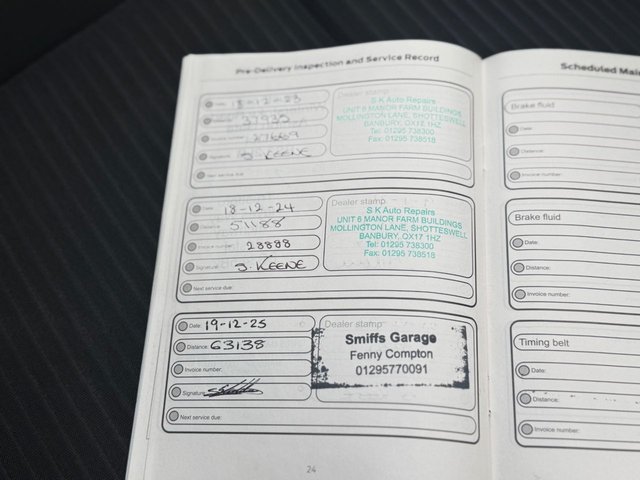 Pre-Delivery Inspection and Service Record
18-12-23
37935
27669
Signature: J. KEENE
Next service due:
Dealer stamp
S K Auto Repairs
UNIT 6 MANOR FARM BUILDINGS
MOLLINGTON LANE, SHOTTESWELL
BANBURY, OX17 1HZ
Tel: 01295 738300
Fax: 01295 738518
Date: 18-12-24
Distance: 51188
Invoice number: 28888
Signature: J. KEENE
Next service due:
Dealer stamp
S K Auto Repairs
UNIT 6 MANOR FARM BUILDINGS
MOLLINGTON LANE, SHOTTESWELL
BANBURY, OX17 1HZ
Tel: 01295 738300
Fax: 01295 738518
Date: 19-12-25
Distance: 63138
Invoice number:
Signature:
Next service due:
Dealer stamp
Smiffs Garage
Fenny Compton
01295770091
24
Scheduled Ma
Brake fluid
Date:
Distance:
Invoice number:
Brake fluid
Date:
Distance:
Invoice number:
Timing belt
Date:
Distance:
Invoice number: